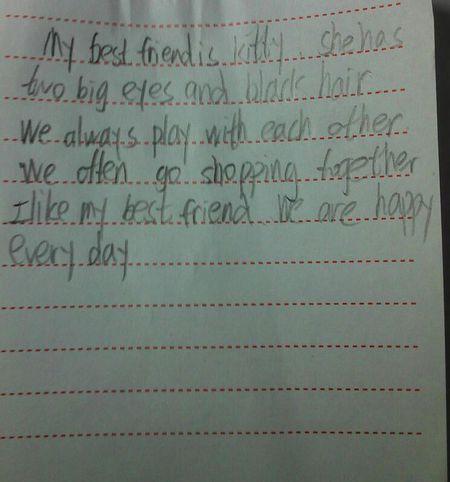 My best friend is kitty. she has
two big eyes and black hair
We always play with each other.
We often go shopping together
I like my best friend. We are happy
every day